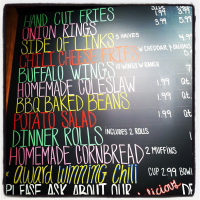 HAND CUT FRIES 3.99 5.99
ONION RINGS 3.99 5.99
SIDE OF LINKS 3 HALVES
CHILI CHEESE FRITO W/ CHEDDAR & ONIONS
BUFFALO WINGS
HOMEMADE COLESLAW 1.99 Qt.
BBQ BAKED BEANS 1.99 Qt.
POTATO SALAD 1.99 Qt
DINNER ROLLS INCLUDES 2 ROLLS
HOMEMADE CORNBREAD 2 MUFFINS
* award winning Chili CUP 2.99 BOWL
PLEASE ASK ABOUT OUR